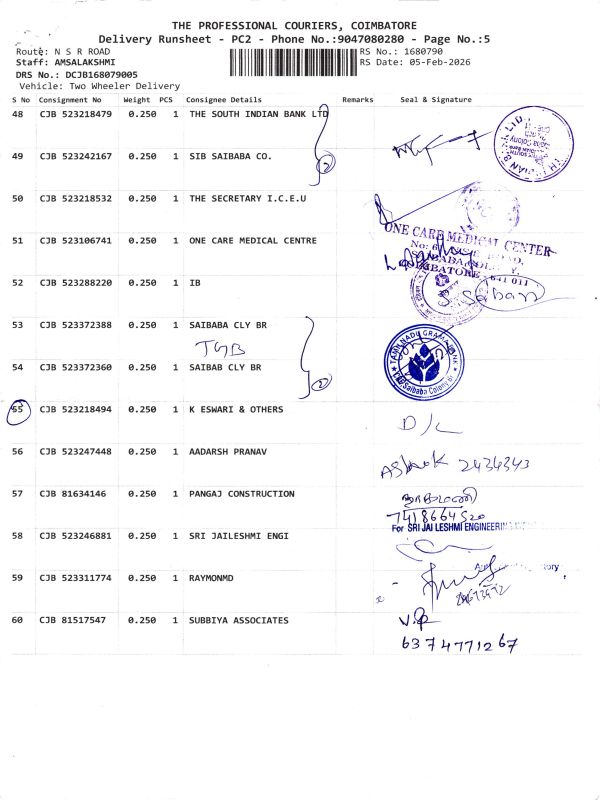 THE PROFESSIONAL COURIERS, COIMBATORE
Delivery Runsheet - PC2 - Phone No.:9047080280 - Page No.:5
Route: N S R ROAD RS No.: 1680790
Staff: AMSALAKSHMI RS Date: 05-Feb-2026
DRS No.: DCJB168079005
Vehicle: Two Wheeler Delivery
S No Consignment No Weight PCS Consignee Details Remarks Seal & Signature
48 CJB 523218479 0.250 1 THE SOUTH INDIAN BANK LTD
49 CJB 523242167 0.250 1 SIB SAIBABA CO.
2
50 CJB 523218532 0.250 1 THE SECRETARY I.C.E.U
51 CJB 523106741 0.250 1 ONE CARE MEDICAL CENTRE
ONE CARE MEDICAL CENTER
COIMBATORE - 641 011
52 CJB 523288220 0.250 1 IB
53 CJB 523372388 0.250 1 SAIBABA CLY BR
TGB
TAMILNADU GRAMA BANK
Saibaba Colony Br
54 CJB 523372360 0.250 1 SAIBAB CLY BR
2
55 CJB 523218494 0.250 1 K ESWARI & OTHERS
D/L
56 CJB 523247448 0.250 1 AADARSH PRANAV
Ashok 2434343
57 CJB 81634146 0.250 1 PANGAJ CONSTRUCTION
7418664520
58 CJB 523246881 0.250 1 SRI JAILESHMI ENGI
For SRI JAI LESHMI ENGINEERING
59 CJB 523311774 0.250 1 RAYMONMD
60 CJB 81517547 0.250 1 SUBBIYA ASSOCIATES
V.P
6374771267